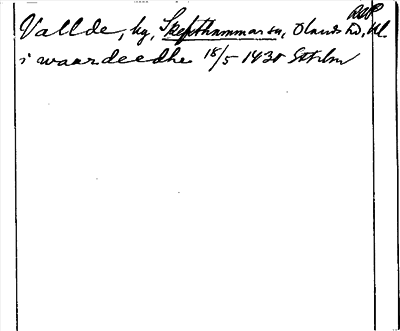 Vallde, hg, Skepthammar sn, Olands hd, Ul.
i waardeedhe 18/5 1430 Sthlm